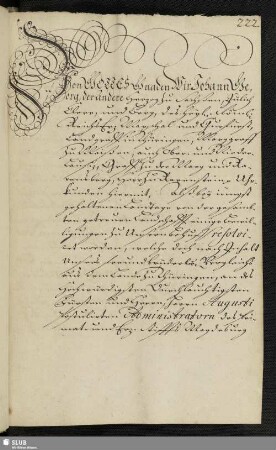 222
Von GOTTES Gnaden Wir Johann Ge-
org, der andere Herzog zu Sachßen, Jülich,
Cleve, und Berg, des Heyl. Röm.
Reichs Erz Marschall und Churfürst,
Landgraff in Thüringen, Marggraff
zu Meißen, auch Ober und Nieder
Lausitz, Graff zu der Marg und Ra-
vensberg, Herr zu Ravenstein, Uhr-
kunden hiermit,
gehaltenen Landtage von der gesamb-
ten getreuen Landschafft einige Bewil-
ligungen zu Unserm Behuff resolvi-
ret worden, welche doch nach Inhalt
Unsers freundbrüderl. Vergleichs
aus dem Lande zu Thüringen, an des
Hochwürdigsten Durchlauchtigsten
Fürsten und Herrn, Herrn Augusti
postulirten Administratorn des Pri-
mat- und Erz-Stiffts Magdeburg
SLUB